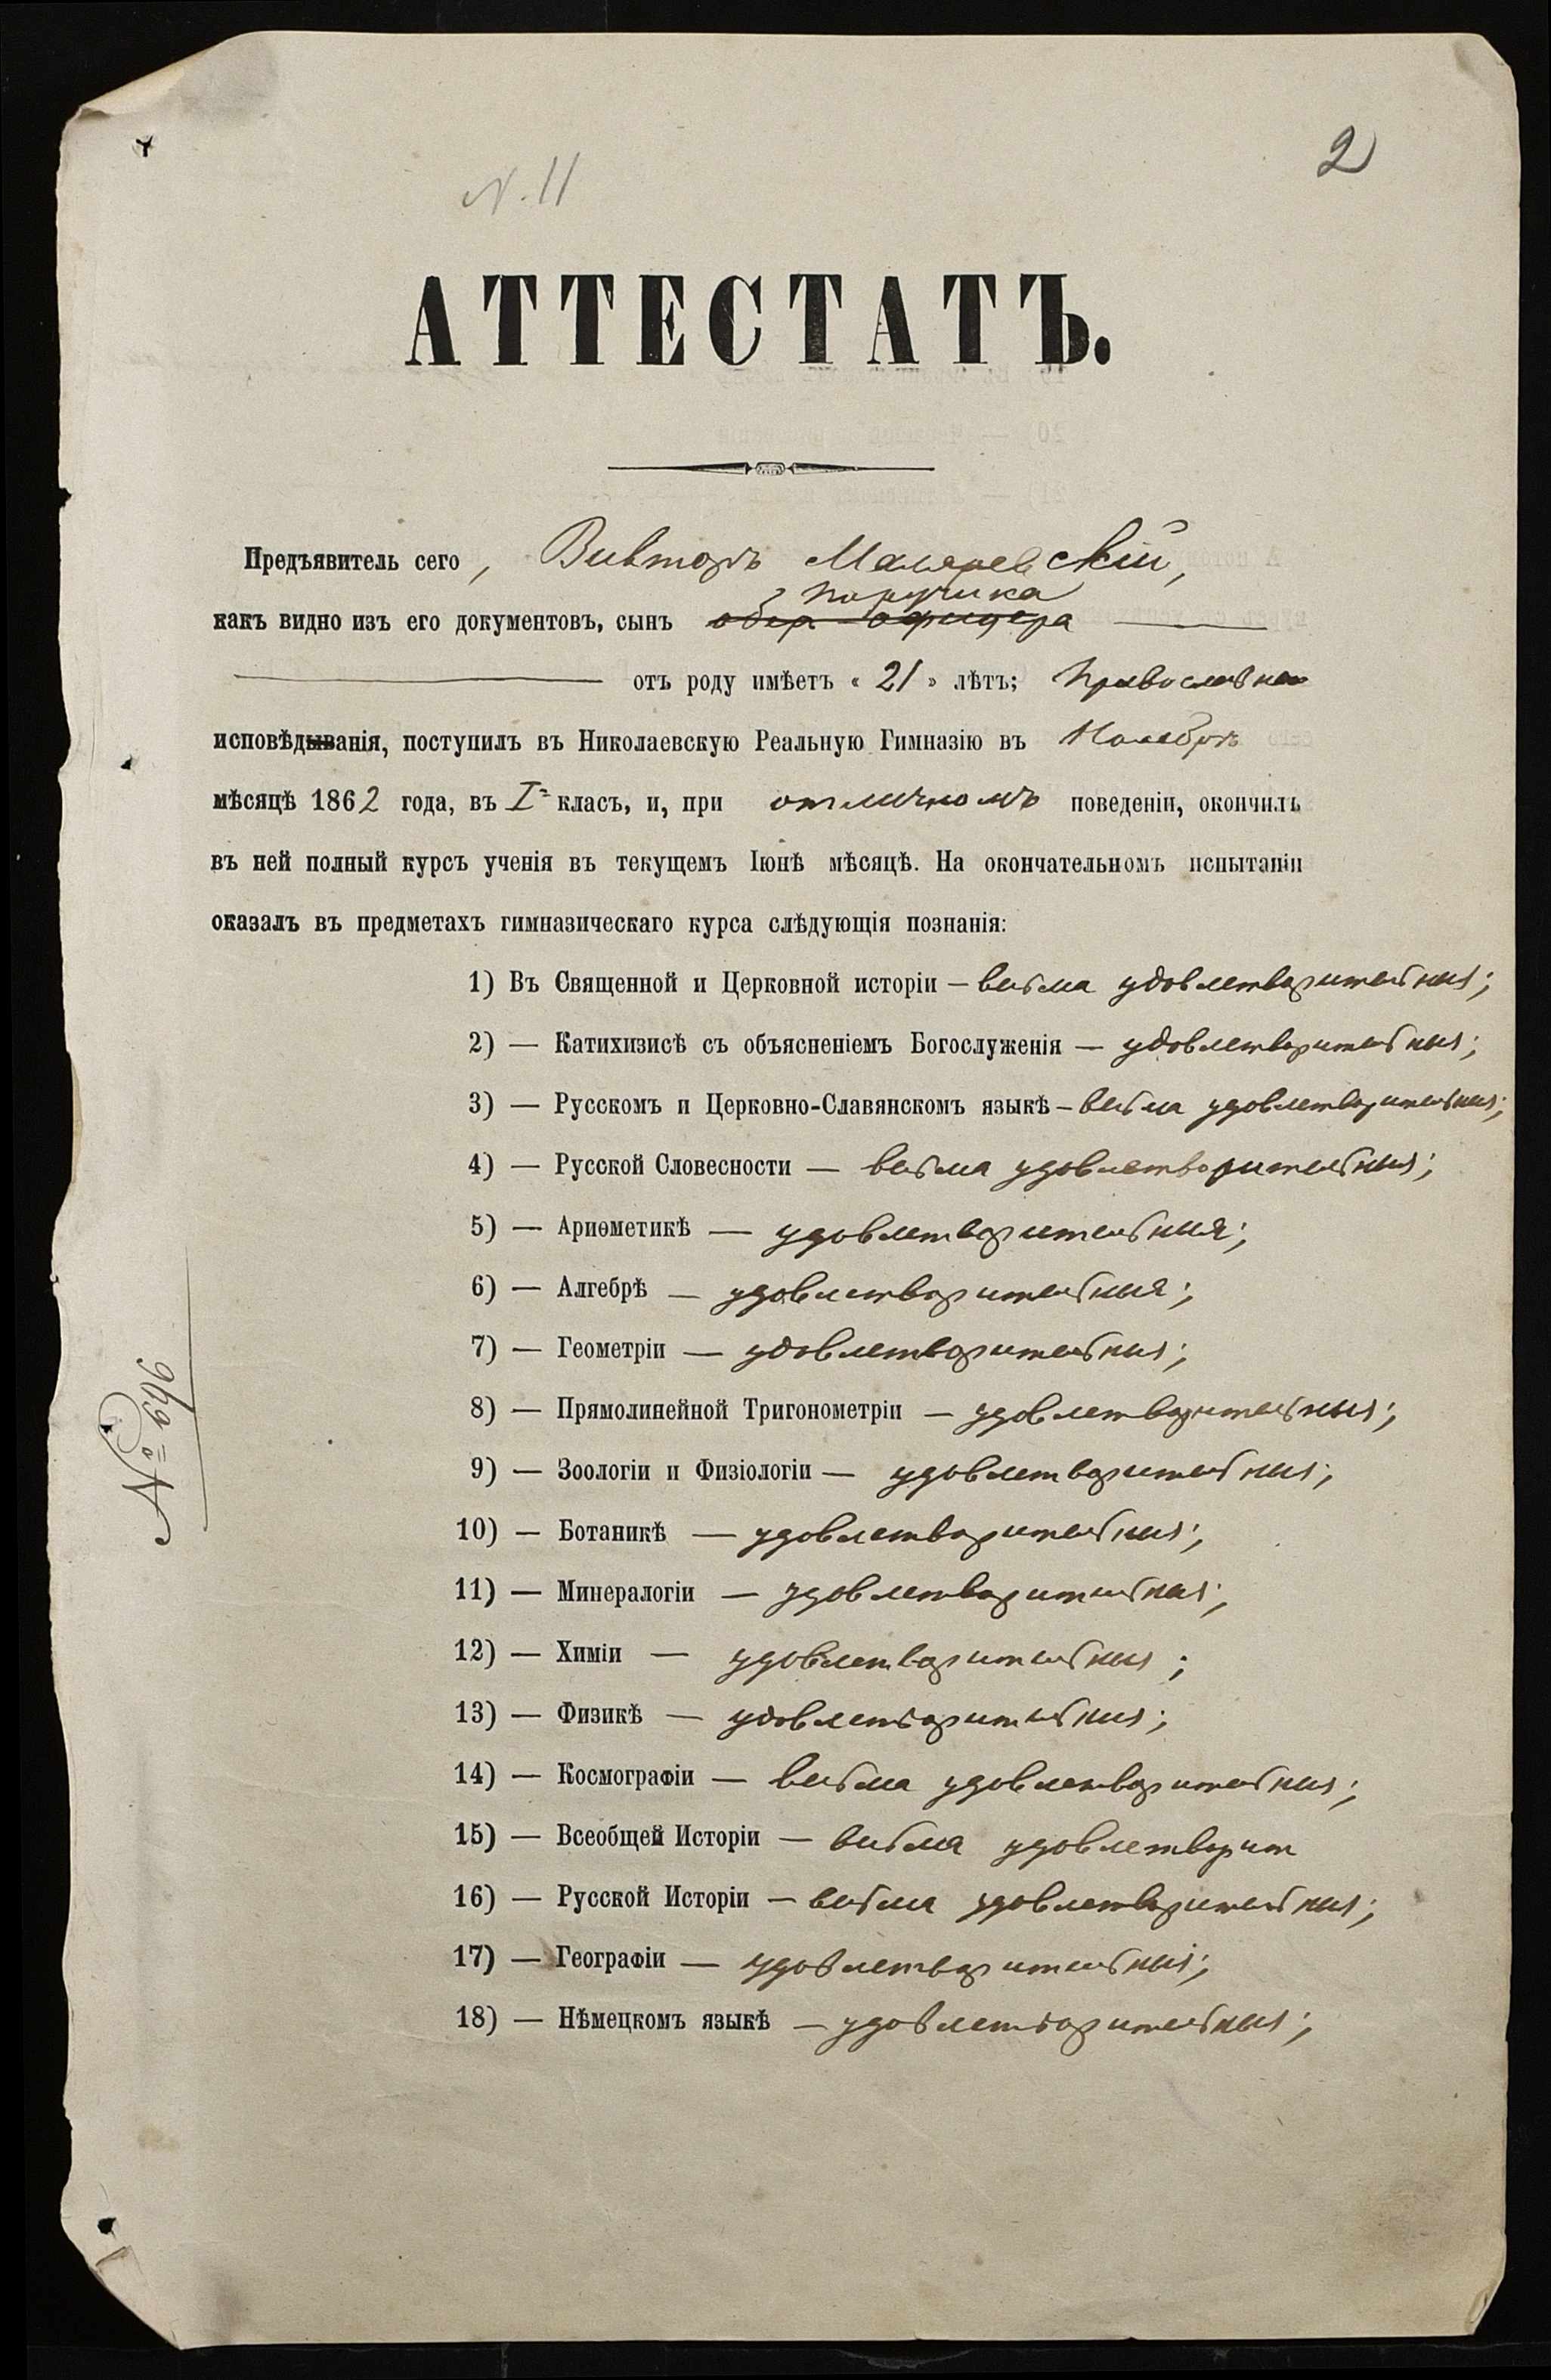 N. 11
2
АТТЕСТАТЪ.
Предъявитель сего, Викторъ Маляревскій,
поручика
какъ видно изъ его документовъ, сынъ обер-офицера
отъ роду имѣетъ « 21 » лѣтъ; Православна
исповѣдыванія, поступилъ въ Николаевскую Реальную Гимназію въ Ноябрѣ
мѣсяцѣ 1862 года, въ I класъ, и, при отличномъ поведеніи, окончилъ
въ ней полный курсъ ученія въ текущемъ Іюнѣ мѣсяцѣ. На окончательномъ испытаніи
оказалъ въ предметахъ гимназическаго курса слѣдующія познанія:
1) Въ Священной и Церковной исторіи — весьма удовлетворительныя;
2) — Катихизисѣ съ объясненіемъ Богослуженія — удовлетворительныя;
3) — Русскомъ и Церковно-Славянскомъ языкѣ — весьма удовлетворительныя;
4) — Русской Словесности — весьма удовлетворительныя;
5) — Ариѳметикѣ — удовлетворительныя;
6) — Алгебрѣ — удовлетворительныя;
7) — Геометріи — удовлетворительныя;
8) — Прямолинейной Тригонометріи — удовлетворительныя;
9) — Зоологіи и Физіологіи — удовлетворительныя;
10) — Ботаникѣ — удовлетворительныя;
11) — Минералогіи — удовлетворительныя;
12) — Химіи — удовлетворительныя;
13) — Физикѣ — удовлетворительныя;
14) — Космографіи — весьма удовлетворительныя;
15) — Всеобщей Исторіи — весьма удовлетворит
16) — Русской Исторіи — весьма удовлетворительныя;
17) — Географіи — удовлетворительныя;
18) — Нѣмецкомъ языкѣ — удовлетворительныя;